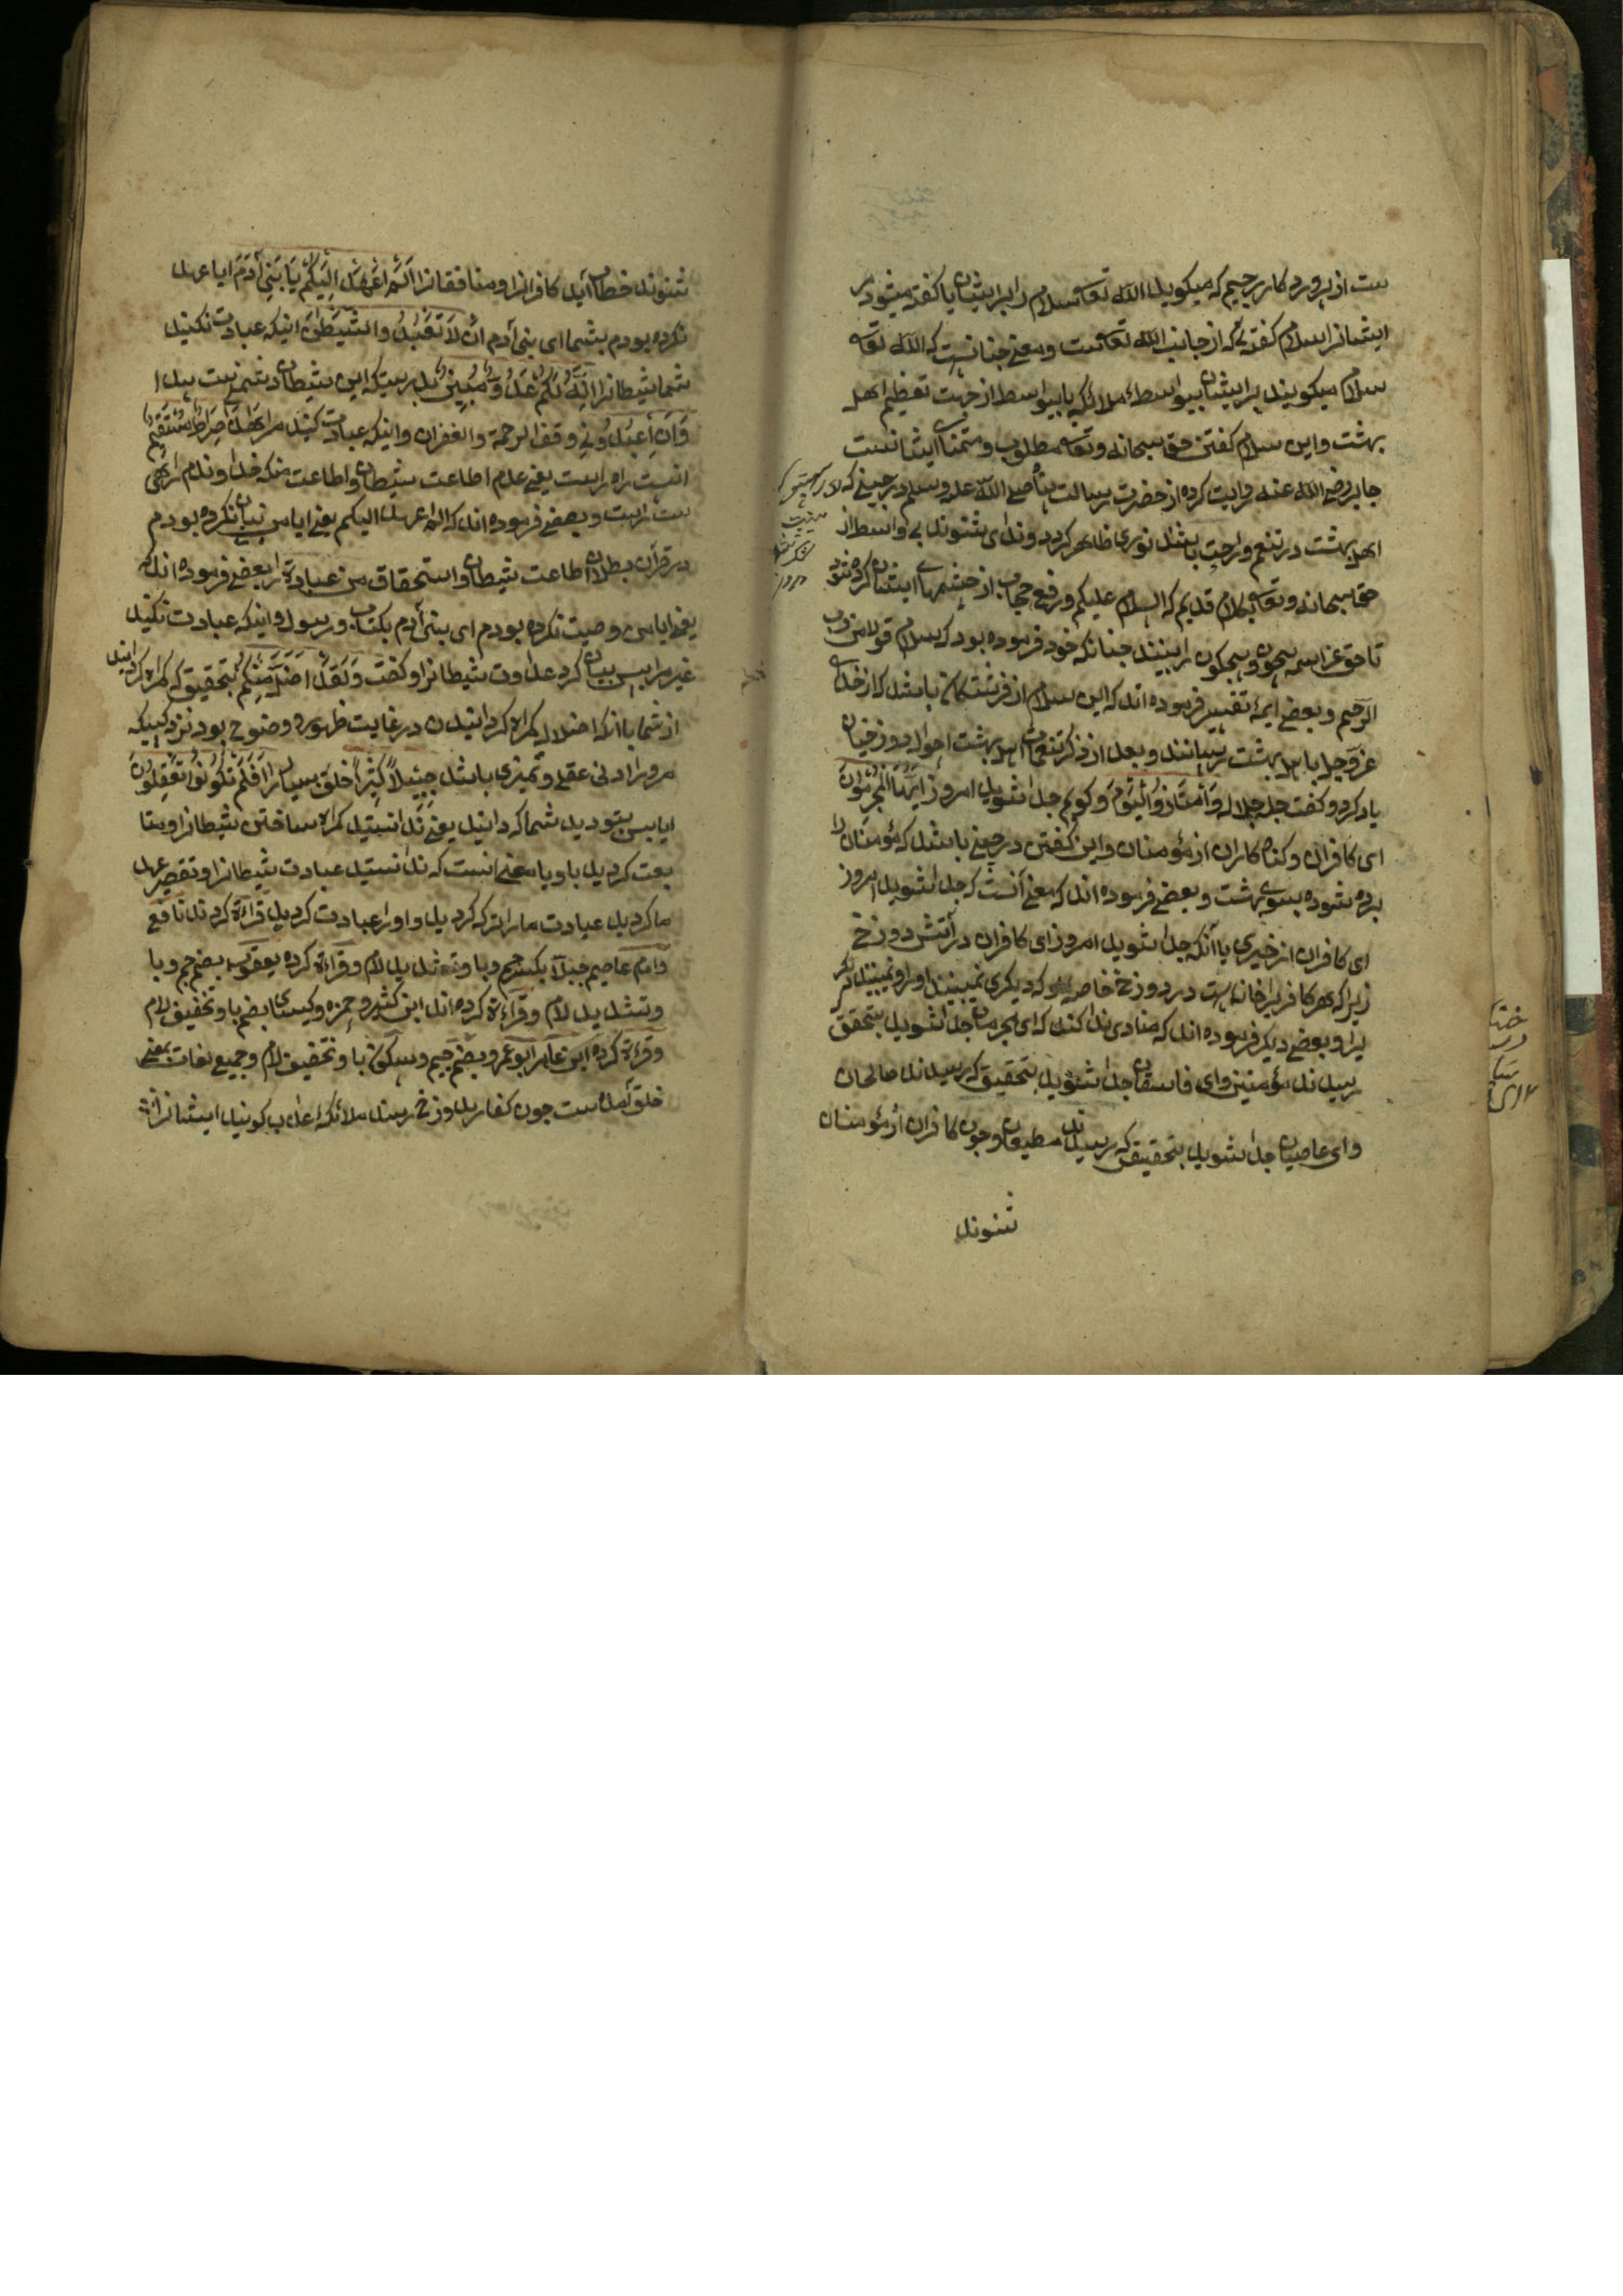 ست از پروردكار رحيم كه ميكويد الله تعا سلام را بر ايشان يا كفته ميشود بر
ايشانرا سلام كفتنى كه از جانب الله تعا ست ومعنے جنانست كه الله تعا
سلام ميكويند بر ايشان بيواسطهٔ ملائكه يا بيواسطه از جهت تعظيم اهل
بهشت واين سلام كفتن حق سبحانه وتعا مطلوب ومتمناى ايشانست
جابر رضے الله عنه روايت كرده از حضرت رسالت پناه صلے الله عليه وسلم در حينے كه
اهل بهشت در تنعم وراحت باشند نورى ظاهر كردد وندا ى شنوند بے واسطه از
حق سبحانه وتعا بكلام قديم كه السلام عليكم ورفع حجاب از چشمهاے ايشان كرده شود
تا حق عز اسمه بيچون وبيچكون را بينند جنانكه خود فرموده بود كه سلام قولا من رب
الرحيم وبعضے ايمهٔ تفسير فرموده اند كه اين سلام از فرشتكان باشد كه از خداے
عز وجل باهل بهشت رسانند وبعد از ذكر تنعمات اهل بهشت احوال دوزخيان
ياد كرد وكفت جل جلاله وَامْتَازُوا الْيَوْمَ وكويم جدا شويد امروز اَيُّهَا الْمُجْرِمُونَ
اى كافران وكناه كاران از مؤمنان واين كفتن در حينے باشد كه مؤمنان را
برده شوده بسوے بهشت وبعضے فرموده اند كه معنے آنست كه جدا شويد امروز
اى كافران از خيرى يا آنكه جدا شويد امروز اى كافران در آتش دوزخ
زيرا كه هر كافريرا خانه ايست در دوزخ خاصه او كه ديكرى نميبيند او را ونميبيند ديكر
يرا وبعضے ديكر فرموده اند كه منادى ندا كند كه اى مجرمان جدا شويد بتحقق
رسيدند مؤمنين واى فاسقان جدا شويد بتحقيق كه رسيدند صالحان
واى عاصيان جدا شويد بتحقيق كه رسيدند مطيعان وجون كافران از مؤمنان
شنوند
شنوند خطاب آيد كافرانرا ومنافقانرا اَلَمْ اَعْهَدْ اِلَيْكُمْ يَا بَنِى آدَمَ ايا عهد
نكرده بودم بشما اى بنى آدم اَنْ لَا تَعْبُدُوا الشَّيْطٰنَ اينكه عبادت نكنيد
شما شيطانرا اِنَّهُ لَكُمْ عَدُوٌّ مُبِينٌ بدرستيكه اين شيطان دشمنى ست پيدا
وَاَنِ اعْبُدُونِى وقف الرحمة والغفران واينكه عبادت كنيد مرا هٰذَا صِرَاطٌ مُسْتَقِيمٌ
اينست راه راست يعنے عدم اطاعت شيطان واطاعت منكه خداوندم راهى
ست راست وبعضے فرموده اند كه الم اعهد اليكم يعنے ايا من بيان نكرده بودم
در قرآن بطلان اطاعت شيطان واستحقاق من عبادة را بعضے فرموده اند كه
يعنے ايا من وصيت نكرده بودم اى بنى آدم بكتاب ورسول واينكه عبادت نكنيد
غير مرا پس بيان كرد عداوت شيطانرا وكفت وَلَقَدْ اَضَلَّ مِنْكُمْ بتحقيق كه كمراه كردانيد
از شما باانكه اضلال كمراه كردانيدن در غايت ظهور ووضوح بود نزد كسيكه
مر ورا ادنى عقلے وتميزى باشد جِبِلًّا كَثِيرًا خلق بسيار را اَفَلَمْ تَكُونُوا تَعْقِلُونَ
ايا پس نبوديد شما كه دانيد يعنے ندانستيد كمراه ساختن شيطانرا ومتا
بعت كرديد باو يا معنے انست كه ندانستيد عبادت شيطانرا وتقصير عهد
ما كرديد عبادت ما را ترك كرديد واو را عبادت كرديد قراءة كردند نافع
وامام عاصم جبلا بكسر جيم وبا وتشديد لام وقراءة كرده يعقوب بضم جيم وبا
وتشديد لام وقراءة كرده اند ابن كثير وحمزه وكيسائى بضم با وتخفيف لام
وقراءة كرده ابن عامر ابو عمرو بضم جيم وسكون با وتخفيف لام وجميع لغات بمعنے
خلق آمده ست جون كفار بدوزخ رسند ملائكه عذاب كويند ايشانرا